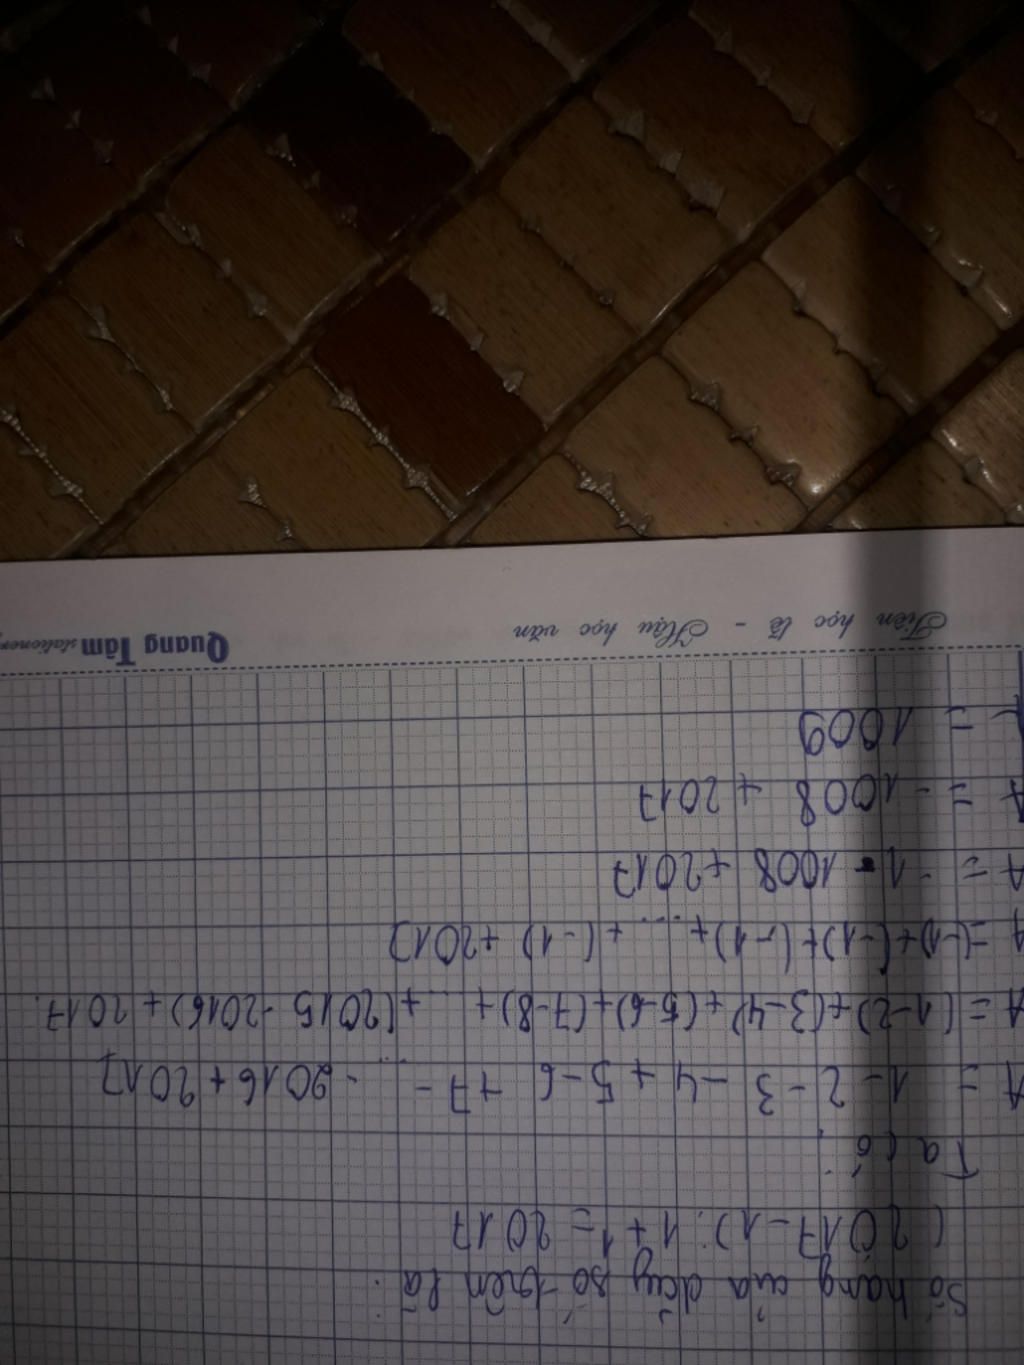 Số hạng của dãy số trên là :
( 2017 - 1) : 1 + 1 = 2017
Ta có :
A = 1 - 2 - 3 - 4 + 5 - 6 + 7 - ... - 2016 + 2017
A = (1-2) + (3-4) + (5-6) + (7-8) + ... + (2015 - 2016) + 2017.
A = (-1) + (-1) + (-1) + ... + (-1) + 2017
A = -1 - 1008 + 2017
A = - 1008 + 2017
A = 1009
Tiên học lễ - Hậu học văn
Quang Tám stationery